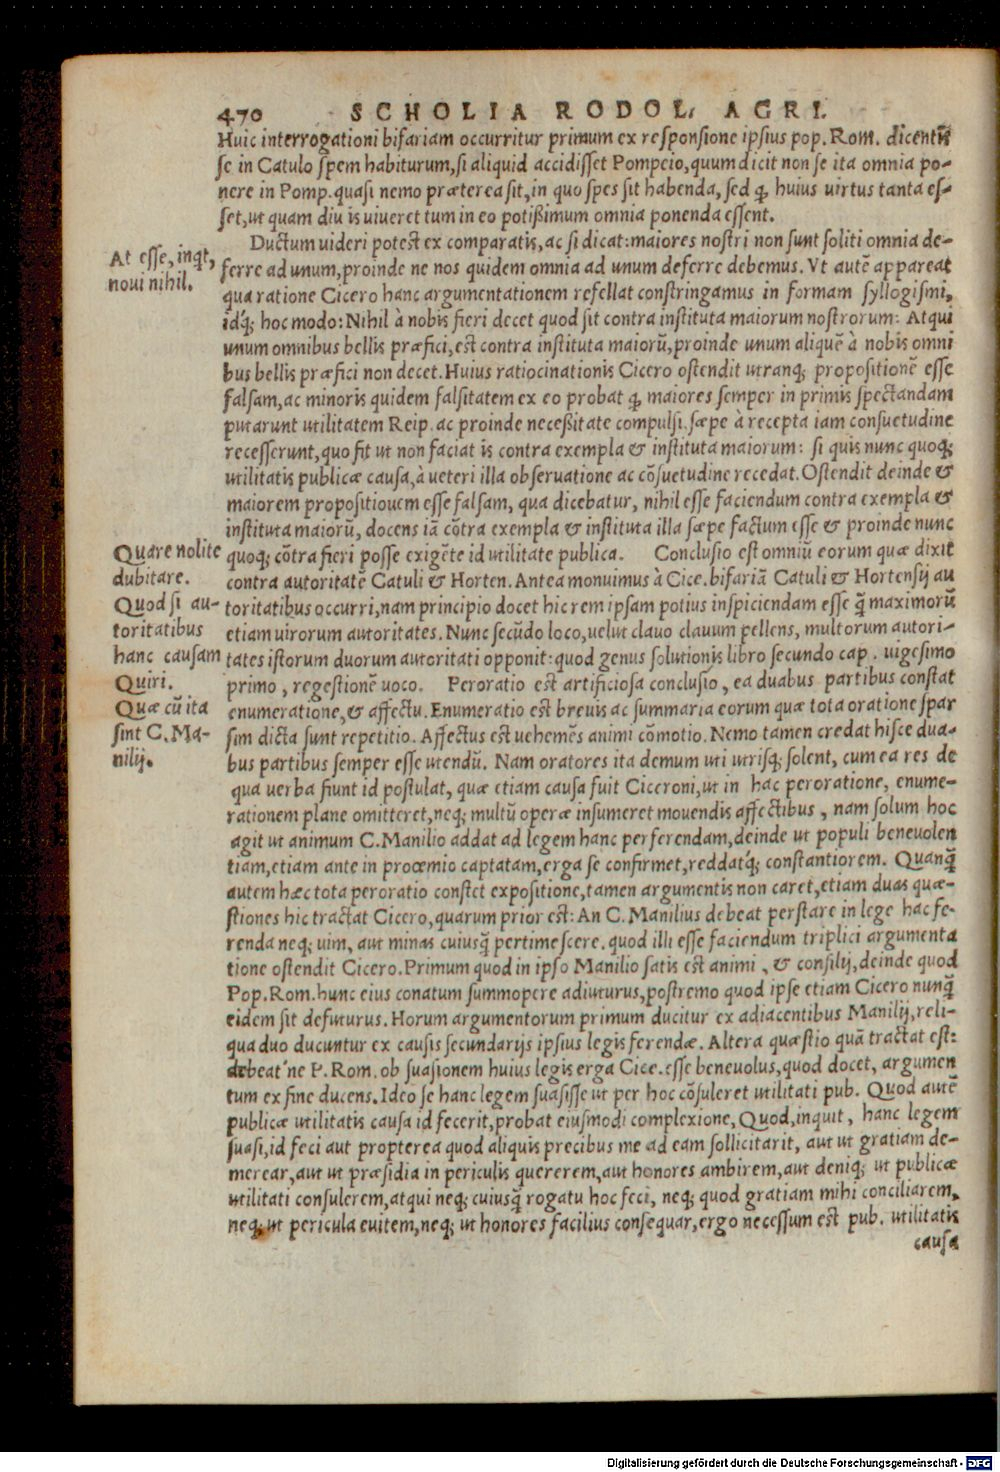 470 SCHOLIA RODOL. AGRI.
Huic interrogationi bifariam occurritur primum ex responsione ipsius pop. Rom. dicentis
se in Catulo spem habiturum, si aliquid accidisset Pompeio, quum dicit non se ita omnia po-
nere in Pomp. quasi nemo præterea sit, in quo spes sit habenda, sed ꝙ huius virtus tanta es-
set, ut quam diu is viveret tum in eo potißimum omnia ponenda essent.
At esse, inqt,
novi nihil.
Ductum uideri potest ex comparatis, ac si dicat: maiores nostri non sunt soliti omnia de-
ferre ad unum, proinde ne nos quidem omnia ad unum deferre debemus. Vt autē appareat
qua ratione Cicero hanc argumentationem refellat constringamus in formam syllogismi,
idq́; hoc modo: Nihil à nobis fieri decet quod sit contra instituta maiorum nostrorum: Atqui
unum omnibus bellis præfici, est contra instituta maiorū, proinde unum aliquē à nobis omni
bus bellis præfici non decet. Huius ratiocinationis Cicero ostendit utranq; propositionē esse
falsam, ac minoris quidem falsitatem ex eo probat ꝙ maiores semper in primis spectandam
putarunt utilitatem Reip. ac proinde neceßitate compulsi, sæpe à recepta iam consuetudine
recesserunt, quo fit ut non faciat is contra exempla & instituta maiorum: si quis nunc quoq;
utilitatis publicæ causa, à ueteri illa obseruatione ac cōsuetudine recedat. Ostendit deinde &
maiorem propositiouem esse falsam, qua dicebatur, nihil esse faciendum contra exempla &
instituta maiorū, docens iā cōtra exempla & instituta illa sæpe factum esse & proinde nunc
Quare nolite
dubitare.
Quod si au-
toritatibus
hanc causam
Quiri.
Quæ cū ita
sint C. Ma-
nilij.
quoq; cōtra fieri posse exigēte id utilitate publica. Conclusio est omniū eorum quæ dixit
contra autoritatē Catuli & Horten. Antea monuimus à Cice. bifariā Catuli & Hortensij au
toritatibus occurri, nam principio docet hic rem ipsam potius inspiciendam esse q̄ maximorū
etiam uirorum autoritates. Nunc secūdo loco, uelut clauo clauum pellens, multorum autori-
tates istorum duorum autoritati opponit: quod genus solutionis libro secundo cap. uigesimo
primo, regestionē uoco. Peroratio est artificiosa conclusio, ea duabus partibus constat
enumeratione, & affectu. Enumeratio est breuis ac summaria eorum quæ tota oratione spar
sim dicta sunt repetitio. Affectus est uehemēs animi cōmotio. Nemo tamen credat hisce dua-
bus partibus semper esse utendū. Nam oratores ita demum uti utrisq; solent, cum ea res de
qua uerba fiunt id postulat, quæ etiam causa fuit Ciceroni, ut in hac peroratione, enume-
rationem plane omitteret, neq; multū operæ insumeret mouendis affectibus, nam solum hoc
agit ut animum C. Manilio addat ad legem hanc perferendam, deinde ut populi beneuolen
tiam, etiam ante in proœmio captatam, erga se confirmet, reddatq́; constantiorem. Quanq̄
autem hæc tota peroratio constet expositione, tamen argumentis non caret, etiam duas quæ-
stiones hic tractat Cicero, quarum prior est: An C. Manilius debeat perstare in lege hac fe-
renda neq; uim, aut minas cuiusq̄ pertimescere. quod illi esse faciendum triplici argumenta
tione ostendit Cicero. Primum quod in ipso Manilio satis est animi, & consilij, deinde quod
Pop. Rom. hunc eius conatum summopere adiuturus, postremo quod ipse etiam Cicero nunq̄
eidem sit defuturus. Horum argumentorum primum ducitur ex adiacentibus Manilij, reli-
qua duo ducuntur ex causis secundarijs ipsius legis ferendæ. Altera quæstio quā tractat est:
debeat'ne P. Rom. ob suasionem huius legis erga Cice. esse beneuolus, quod docet, argumen
tum ex fine ducens. Ideo se hanc legem suasisse ut per hoc cōsuleret utilitati pub. Quod autē
publicæ utilitatis causa id fecerit, probat eiusmodi complexione, Quod, inquit, hanc legem
suasi, id feci aut propterea quod aliquis precibus me ad eam sollicitarit, aut ut gratiam de-
merear, aut ut præsidia in periculis quererem, aut honores ambirem, aut deniq; ut publicæ
utilitati consulerem, atqui neq; cuiusq̄ rogatu hoc feci, neq; quod gratiam mihi conciliarem,
neq; ut pericula euitem, neq; ut honores facilius consequar, ergo necessum est pub. utilitatis
causa
Digitalisierung gefördert durch die Deutsche Forschungsgemeinschaft - DFG